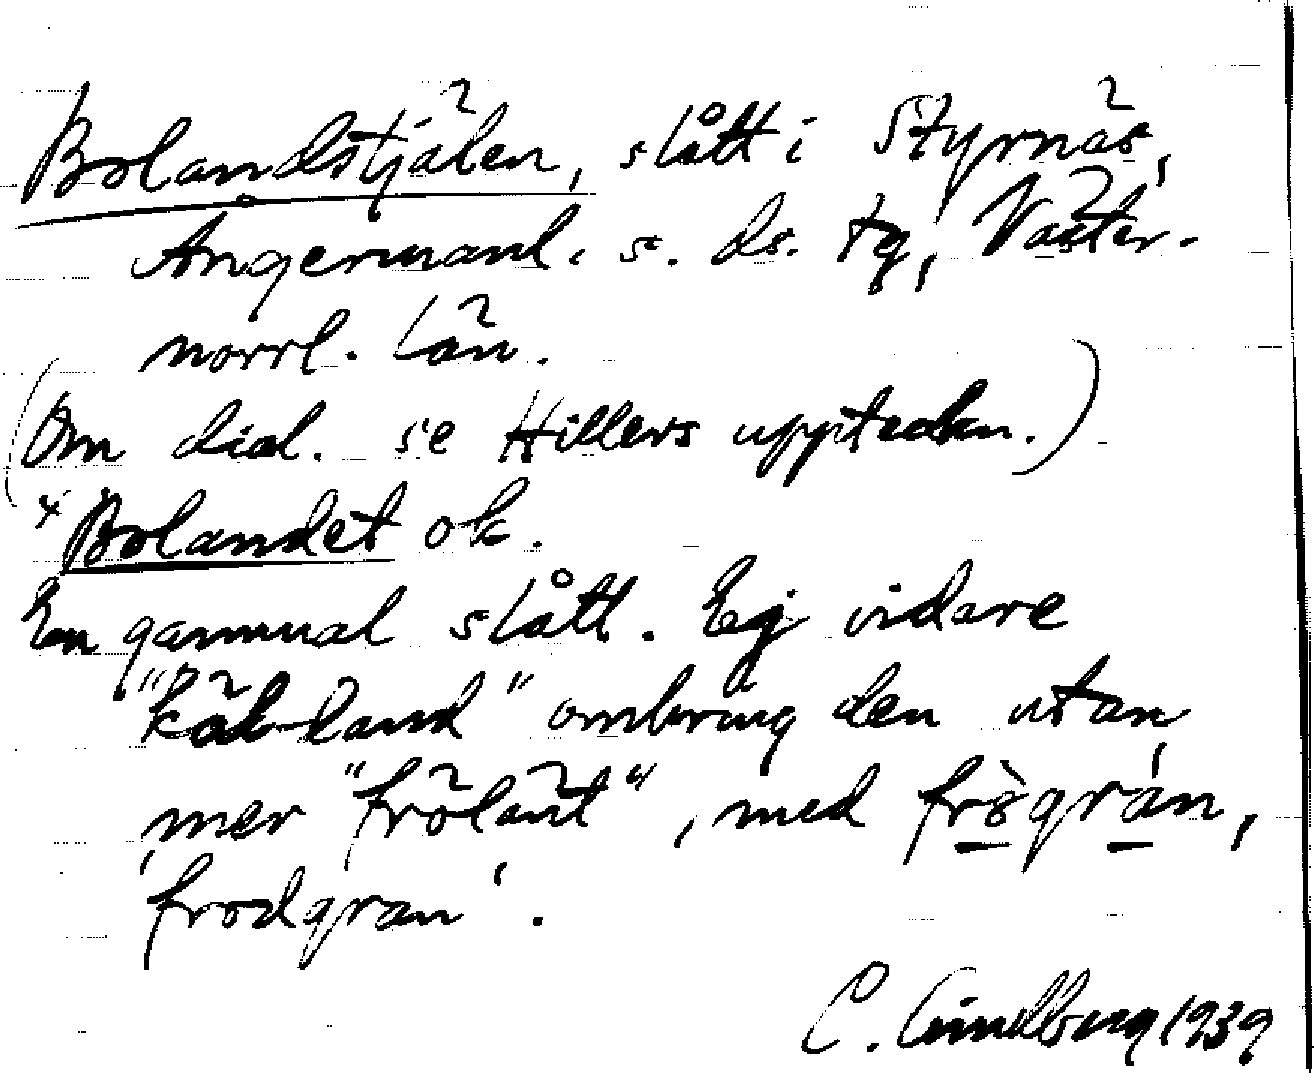 Bolandstjälen, slått i Styrnäs,
Ångermanl. s. ds. tg, Väster-
norrl. län.
(Om dial. se Hillers uppteckn.)
× Bolandet ok.
En gammal slått. Ej vidare
"käl-land" omkring den utan
mer "frölänt", med frögran,
'frodgran'.
C. Lindberg 1939